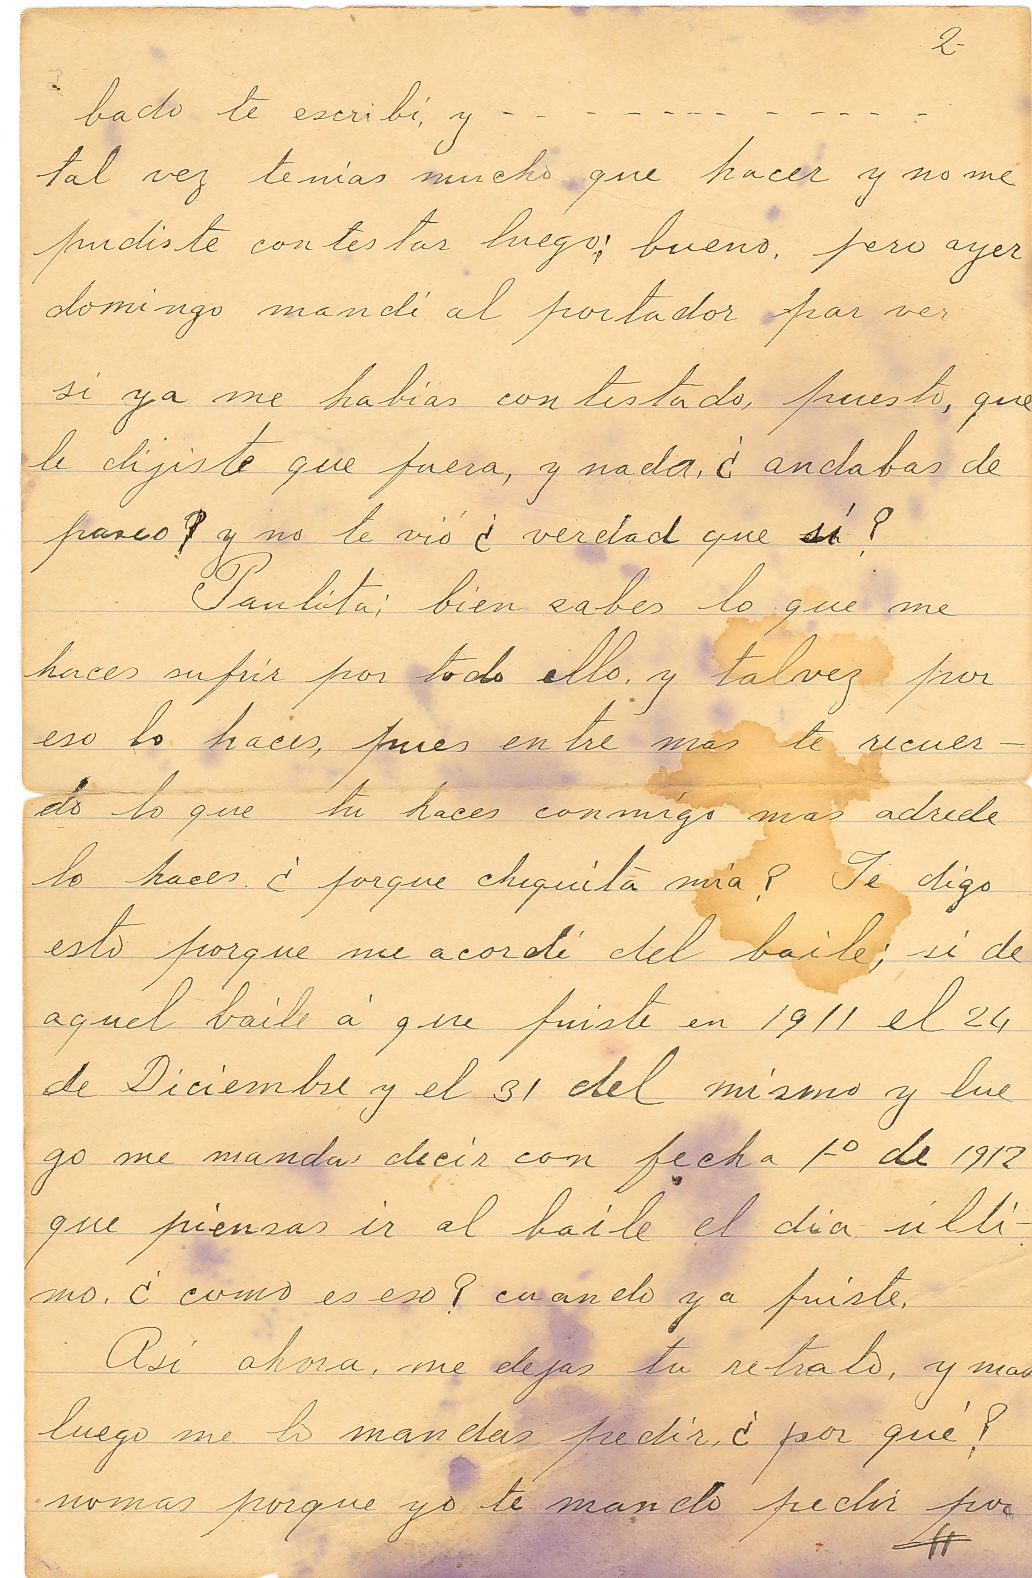 2-
bado te escribí, y - - - - - - - - - - - -
tal vez tenias mucho que hacer y no me
pudiste contestar luego; bueno, pero ayer
domingo mandé al portador par ver
si ya me habías contestado, puesto, que
le dijiste que fuera, y nada, ¿ andabas de
paseo? y no te vió ¿ verdad que sí ?
Paulita; bien sabes lo que me
haces sufrir por todo ello, y talvez por
eso lo haces, pues entre mas te recuer-
do lo que tu haces conmigo mas adrede
lo haces. ¿ porque chiquita mia? Te digo
esto porque me acordé del baile; si de
aquel baile á que fuiste en 1911 el 24
de Diciembre y el 31 del mismo y lue
go me mandas decir con fecha 1-º de 1912
que piensas ir al baile el dia últi-
mo. ¿ como es eso? cuando ya fuiste.
Asi ahora, me dejas tu retrato, y mas
luego me lo mandas pedir, ¿ por qué?
nomas porque yo te mando pedir por